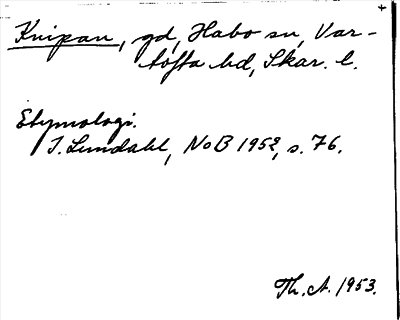 Knipan, gd, Habo sn, Var-
tofta hd, Skar. l.
Etymologi.
I. Lundahl, NoB 1952, s. 76.
Th. A. 1953.